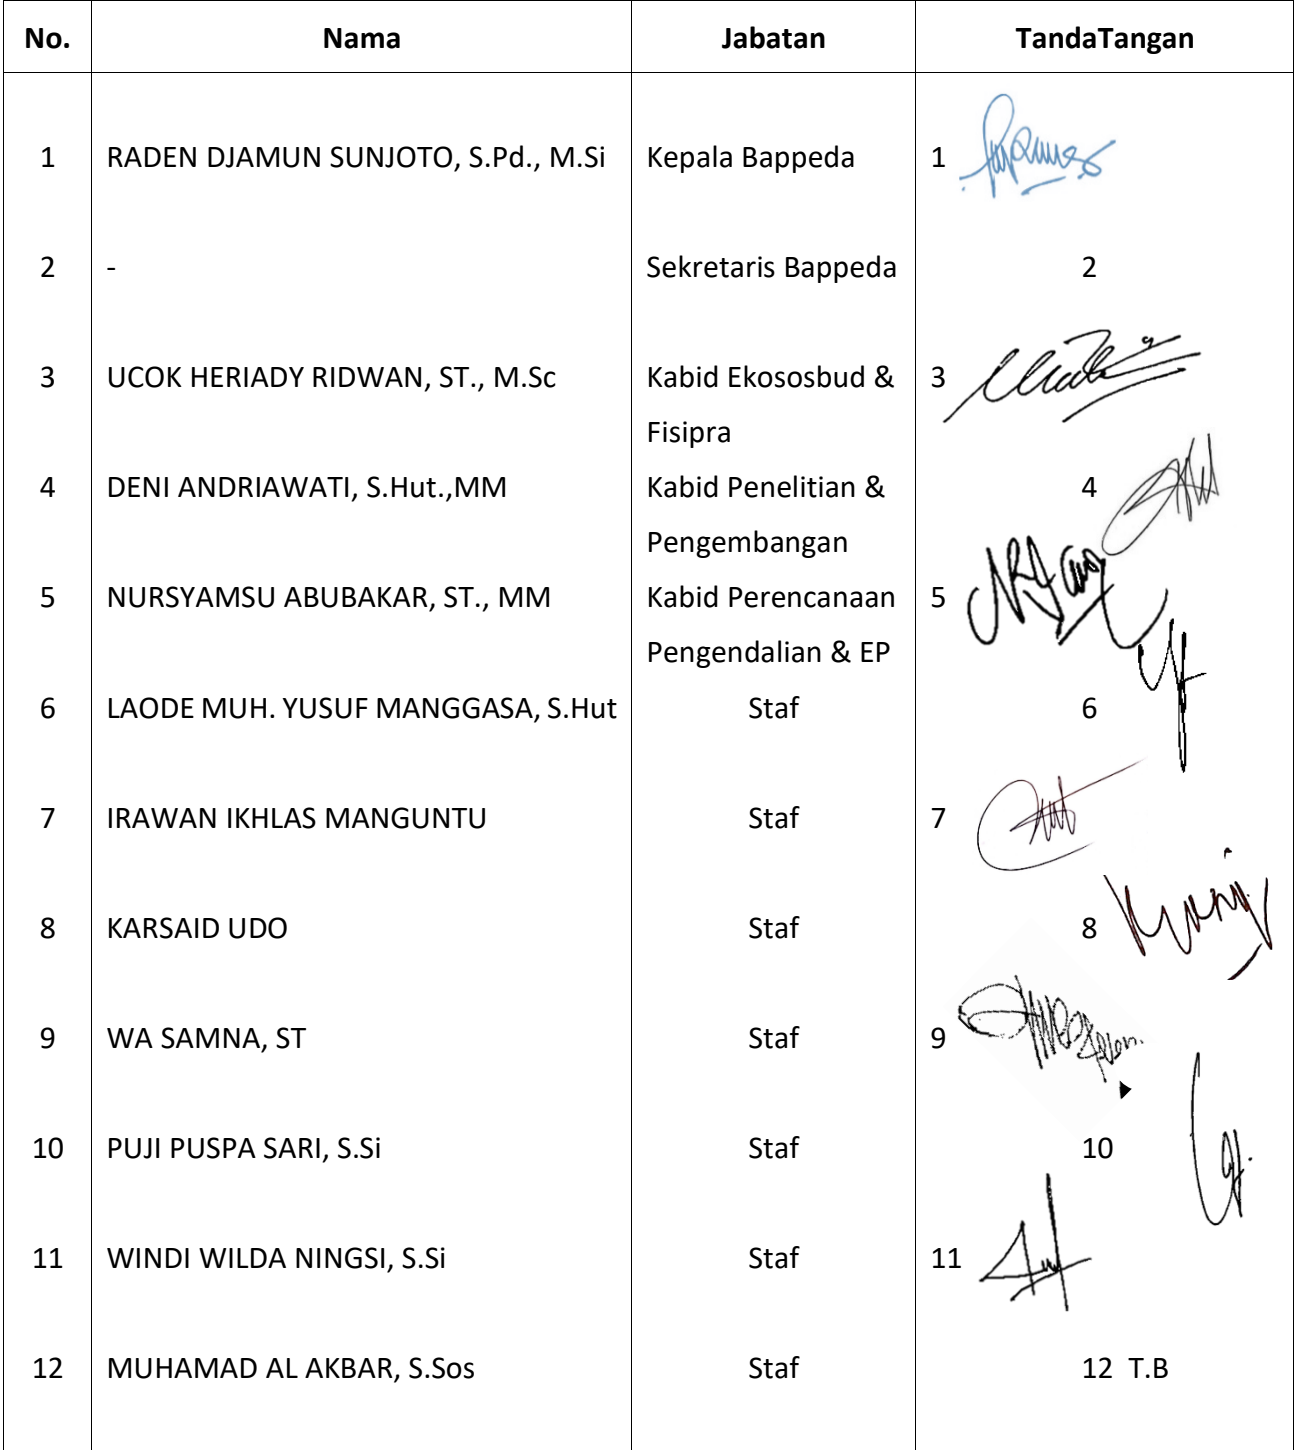 No. Nama Jabatan TandaTangan
1 RADEN DJAMUN SUNJOTO, S.Pd., M.Si Kepala Bappeda 1
2 - Sekretaris Bappeda 2
3 UCOK HERIADY RIDWAN, ST., M.Sc Kabid Ekososbud & 3
Fisipra
4 DENI ANDRIAWATI, S.Hut.,MM Kabid Penelitian & 4
Pengembangan
5 NURSYAMSU ABUBAKAR, ST., MM Kabid Perencanaan 5
Pengendalian & EP
6 LAODE MUH. YUSUF MANGGASA, S.Hut Staf 6
7 IRAWAN IKHLAS MANGUNTU Staf 7
8 KARSAID UDO Staf 8
9 WA SAMNA, ST Staf 9
10 PUJI PUSPA SARI, S.Si Staf 10
11 WINDI WILDA NINGSI, S.Si Staf 11
12 MUHAMAD AL AKBAR, S.Sos Staf 12 T.B